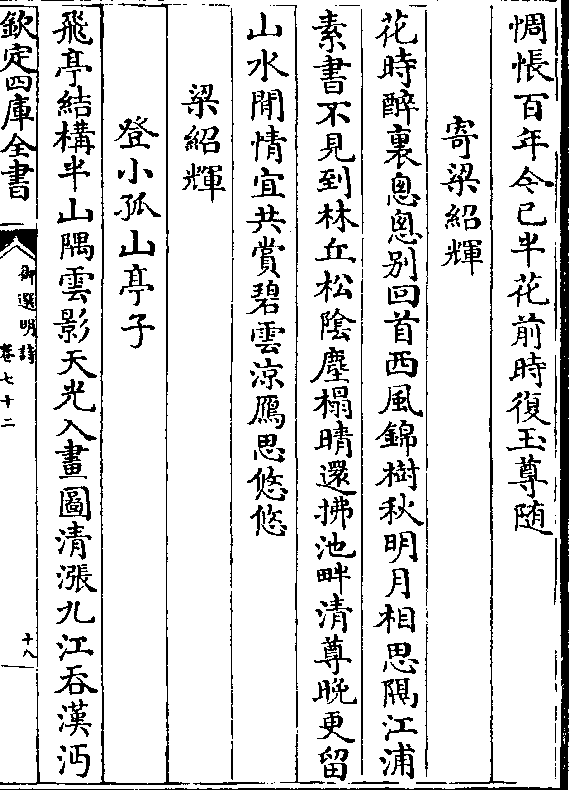 惆悵百年今已半花前時復玉尊随
寄梁紹輝
花時醉裏悤悤别回首西風錦樹秋明月相思隔江浦
素書不見到林丘松陰塵榻晴還拂池畔清尊晚更留
山水閒情宜共賞碧雲涼鴈思悠悠
梁紹輝
登小孤山亭子
飛亭結構半山隅雲影天光入畫圖清漲九江吞漢沔
欽定四庫全書
御選明詩
卷七十二
十八